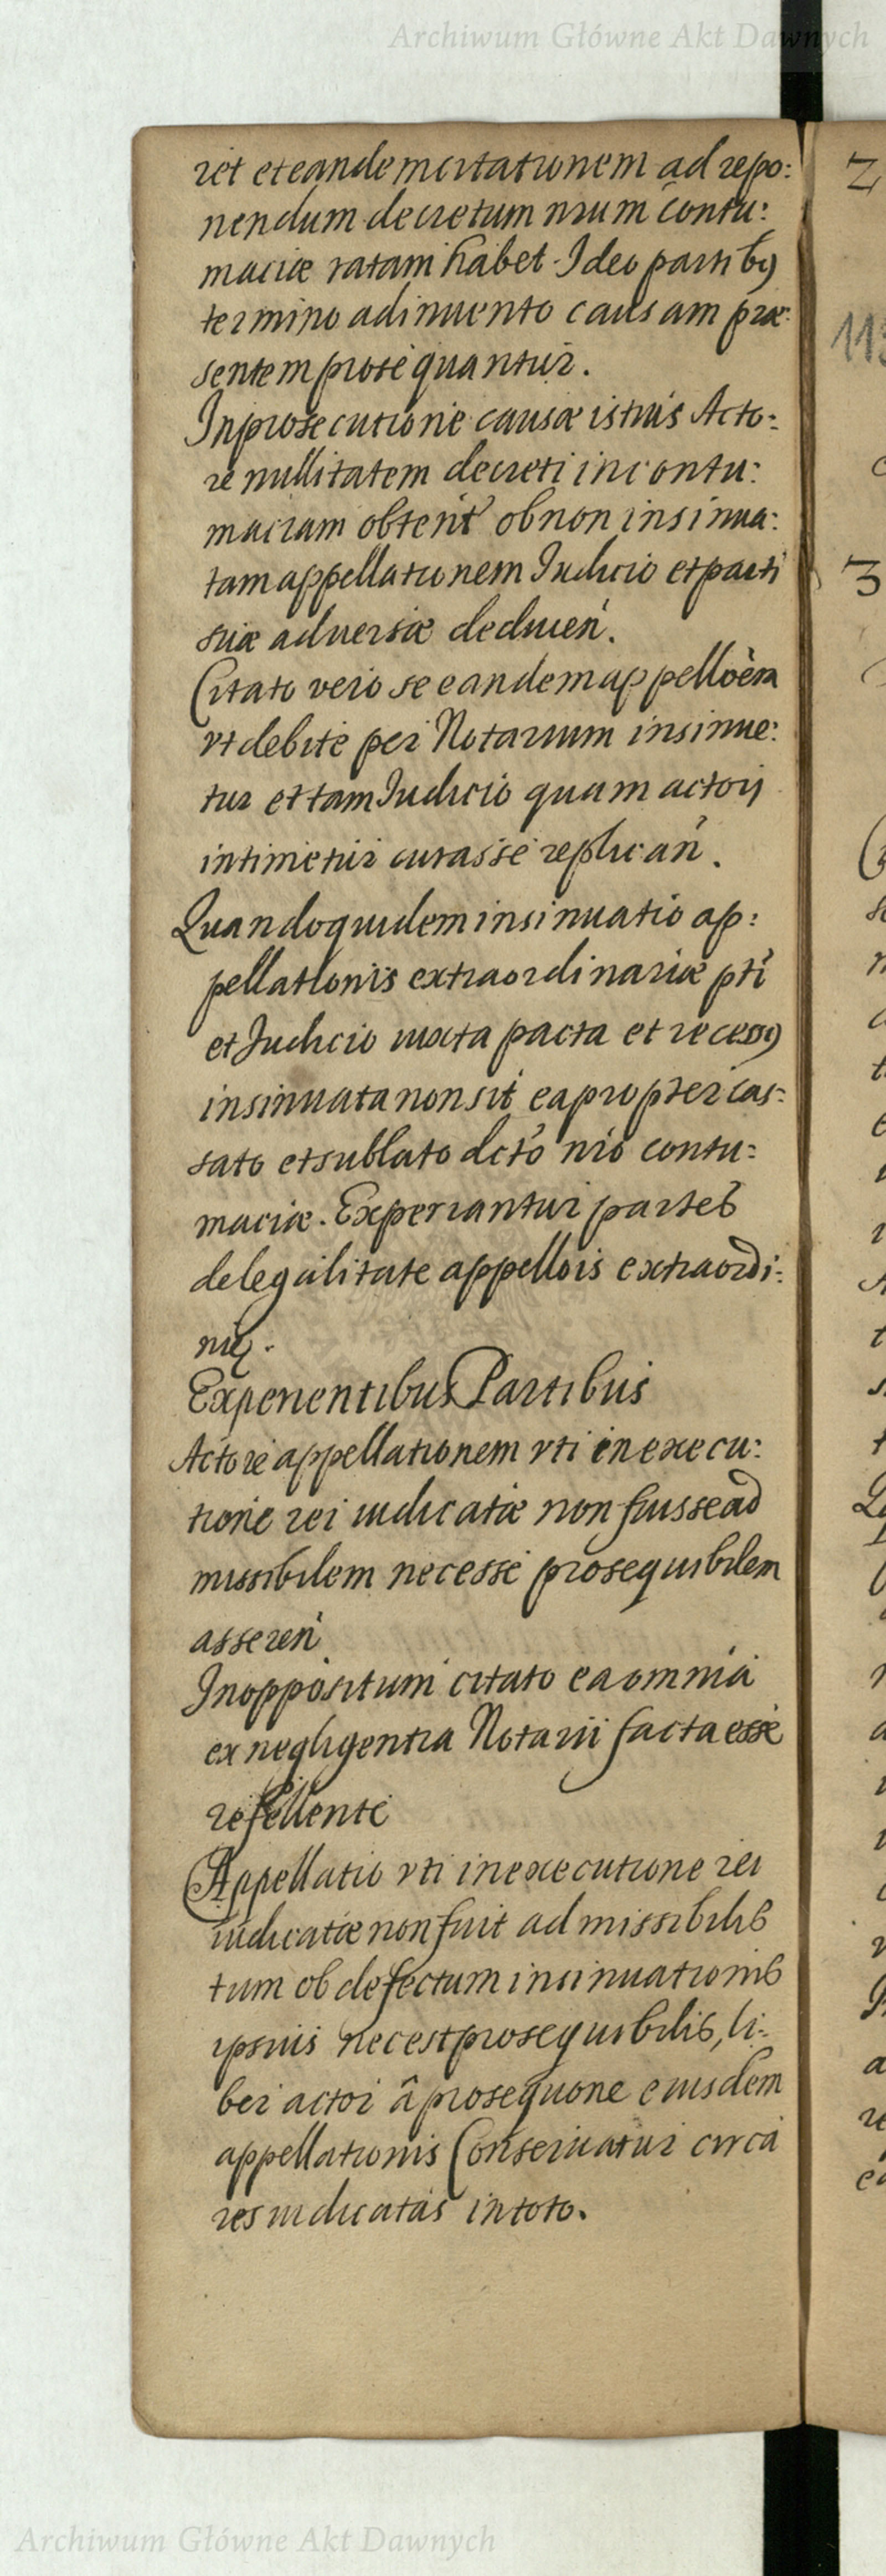 Archiwum Główne Akt Dawnych
ret et eandem citationem ad repo:
nendum decretum nrum contu:
maciæ ratam habet. Ideo partibq
termino adinuento causam præ:
sentem prosequantur.
In prosecutione causæ istius Acto:
re nullitatem decreti in contu:
maciam obtent ob non insinua:
tam appellationem Iudicio et parti
suæ aduersæ deducen.
Citato vero se eandem appelloem
vt debite per Notarium insinue:
tur et tam Iudicio quam actorj
intimetur curasse replican.
Quandoquidem insinuatio ap:
pellationis extraordinariæ pti
et Iudicio iuxta pacta et recessq
insinuata non sit eapropter cas:
sato et sublato dcto nro contu:
maciæ. Experiantur partes
de legalitate appellois extraordi:
nię.
Experientibus Partibus
Actore appellationem vti in execu:
tione rei iudicatæ non fuisse ad
missibilem nec esse prosequibilem
asseren
In oppositum citato ea omnia
ex negligentia Notarii facta esse
refellente
Appellatio vti in executione rei
iudicatæ non fuit admissibilis
tum ob defectum insinuationis
ipsius nec est prosequibilis, li:
ber actor â prosequone eiusdem
appellationis Conseruatur circa
res iudicatas in toto.
2
113
3
Archiwum Główne Akt Dawnych